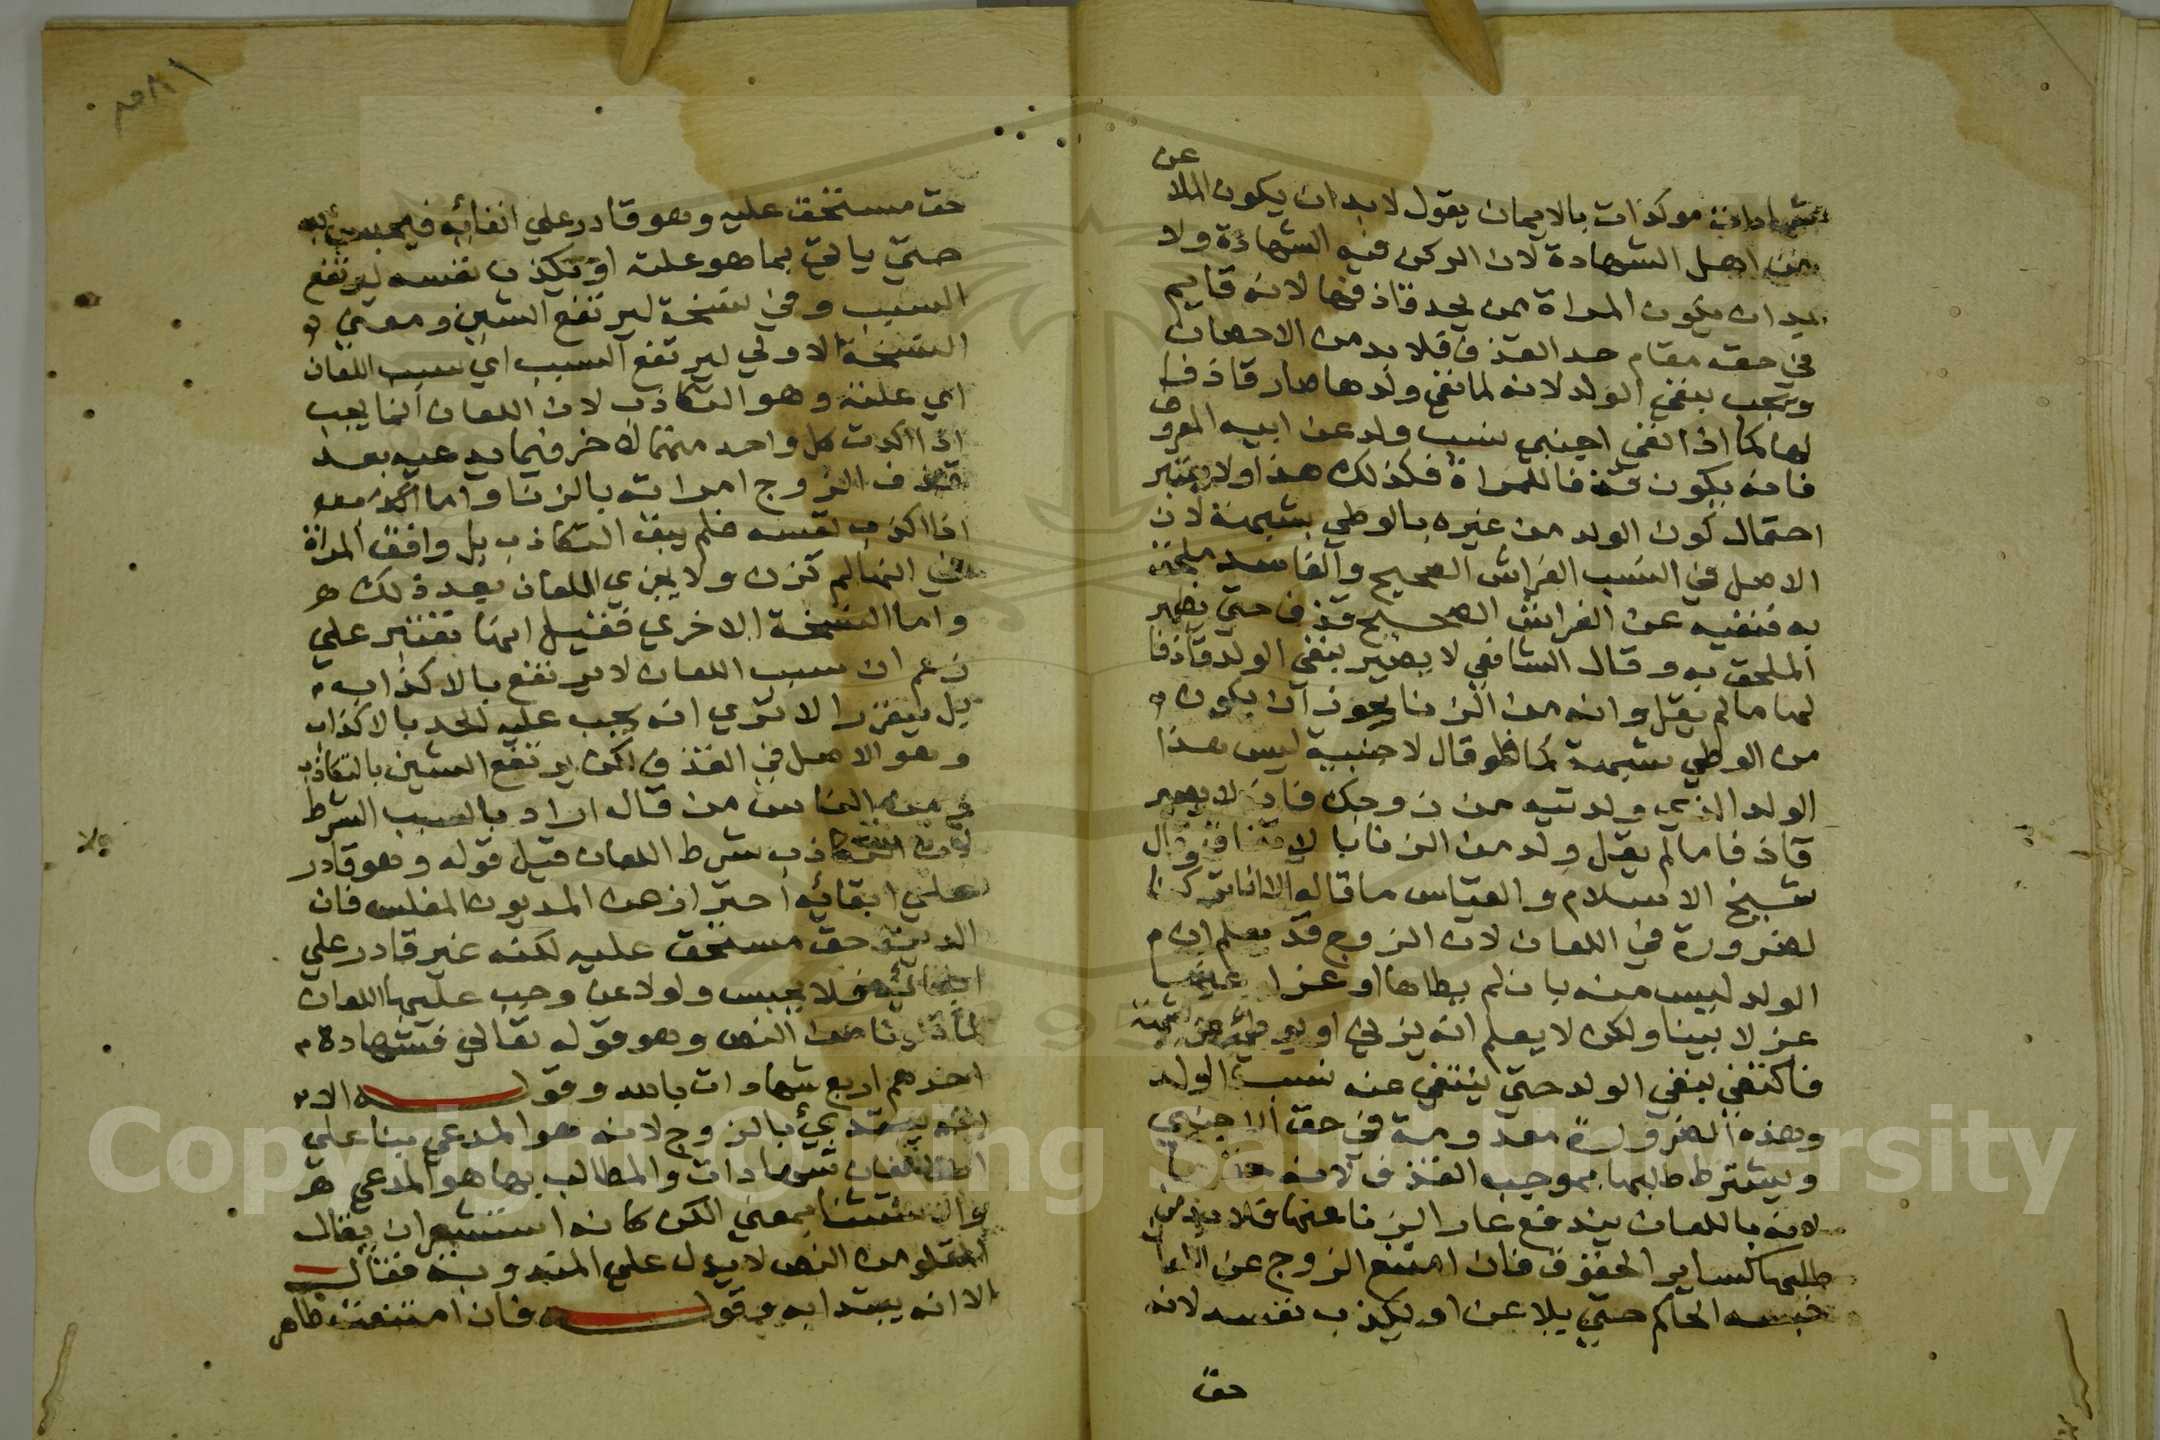 شهادات موكدات بالايمان يقول لا بد ان يكون الملاعن
من اهل الشهادة لان الركن فيه الشهادة ولا
بد ان يكون المراة ممن يحد قاذفها لانه قايم
في حقه مقام حد القذف فلا بد من الاحصان
ويجب بنفي الولد لانه لما نفي ولدها صار قاذفا
لها كما اذا نفي اجنبي نسب ولد عن ابيه المعروف
فانه يكون قذفا للمراة فكذلك هذا ولا يعتبر
احتمال كون الولد من غيره بالوطي بشبهة لان
الاصل في النسب الفراش الصحيح والفاسد ملحق
به فنفيه عن الفراش الصحيح قذف حتي يظهر
الملحق به وقال الشافعي لا يصير بنفي الولد قاذفا
لها ما لم يقل وانه من الزنا يجوز ان يكون
من الوطي بشبهة كما لو قال لاجنبية ليس هذا
الولد الذي ولدتيه من زوجك فانه لا يصير
قاذفا ما لم يقل ولد من الزنا بالاتفاق وقال
شيخ الاسلام والقياس ما قاله الا انا تركنا
لضرورة في اللعان لان الزوج قد يعلم ان
الولد ليس منه بان لم يطاها او عزل عنها
عزلا بينا ولكن لا يعلم انه يزني او بوطئ عن شبهة
فاكتفي بنفي الولد حتي ينتفي عنه نسب الولد
وهذه الضرورة معدومة في حق الاجنبي
ويشترط طلبها بموجب القذف لانه حقها
لانه باللعان يندفع عار الزنا عنها فلا بد من
طلبها كساير الحقوق فان امتنع الزوج عن اللعان
حبسه الحاكم حتي يلاعن او يكذب نفسه لانه
حق
حق مستحق عليه وهو قادر علي انفائه فيحبس به
حتي ياتي بما هو عليه او يكذب نفسه ليرتفع
السبب وفي نسخة ليرتفع الشين ومعني
النسخة الاولي ليرتفع السبب اي سبب اللعان
اي علته وهو التكاذب لان اللعان انما يجب
اذا اكذب كل واحد منهما الاخر فيما يدعيه بعد
قذف الزوج امراته بالزنا واما
اذا اكذب نفسه فلم يبق التكاذب بل وافق المراة
في انها لم تزن ولا يجزي اللعان بعد ذلك
واما النسخة الاخري فقيل انها تفسر علي
زعم ان سبب اللعان لا يرتفع بالاكذاب
بل يتقرر الا تري انه يجب عليه الحد بالاكذاب
وهو الاصل في القذف لكن يرتفع الشين بالتكاذب
ومن الناس من قال اراد بالسبب الشرط
لان التكاذب شرط اللعان قيل قوله وهو قادر
علي ابقائه احتراز عن المديون المفلس فان
الدين حق مستحق عليه لكنه غير قادر علي
ايفائه فلا يحبس ولو لاعن وجب عليها اللعان
لما تلونا من النص وهو قوله تعالي فشهادة
احدهم اربع شهادات بالله وقوله الا
انه يبتدئ بالزوج لانه هو المدعي بنا علي
ان اللعان شهادات والمطالب بها هو المدعي
والاستثنا بمعني لكن كانه استشعر ان يقال
المتلو من النص لا يدل علي البدوية فقال
الا انه يبتدا به وقوله فان امتنعت ظاهر